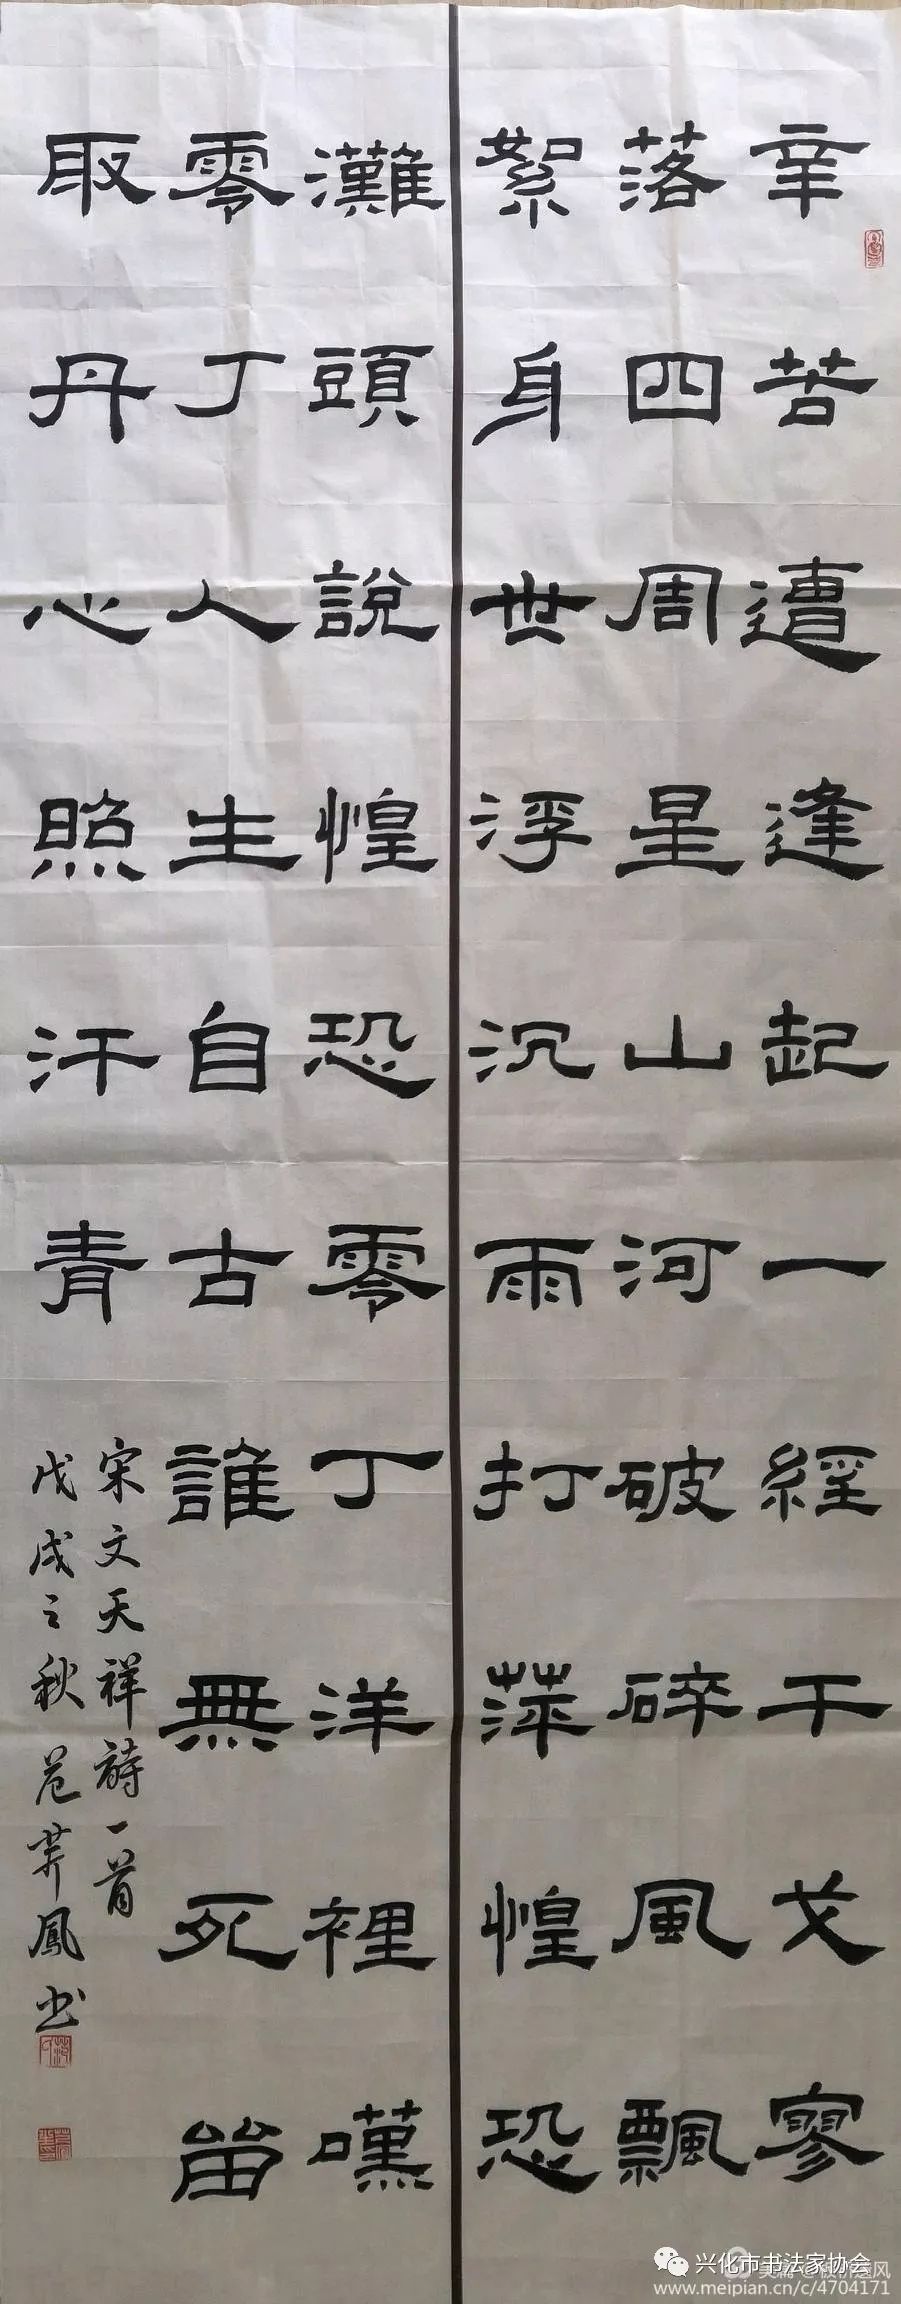 辛苦遭逢起一經干戈寥
落四周星山河破碎風飄
絮身世浮沉雨打萍惶恐
灘頭說惶恐零丁洋裡嘆
零丁人生自古誰無死留
取丹心照汗青
宋文天祥詩一首
戊戌之秋范鳳书
兴化市书法家协会
www.meipian.cn/c/4704171